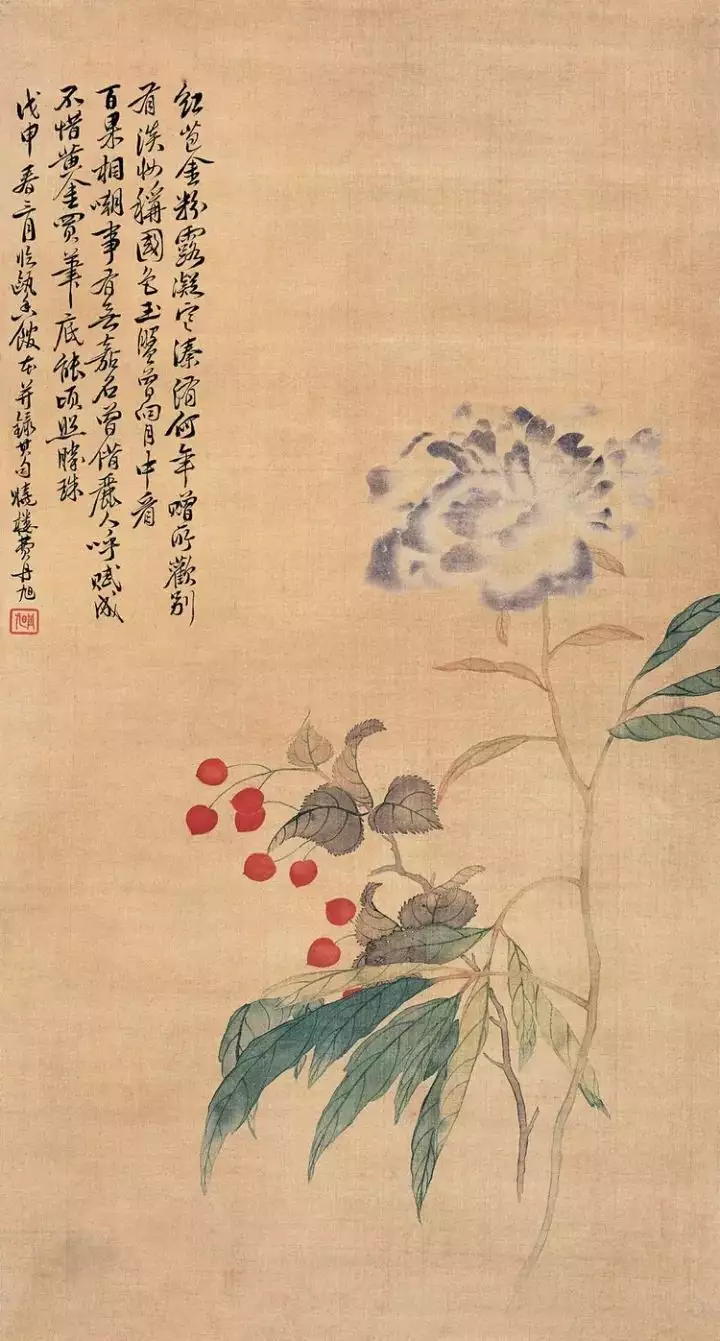 紅苞金粉露凝寒溱洧何年贈所歡別
有淡妝稱國色玉盤曾向月中看
百果相嘲事有無嘉名曾借麗人呼賦成
不惜黄金買筆底能頃照勝珠
戊申春三月臨甌香館本并錄其句曉樓費丹旭